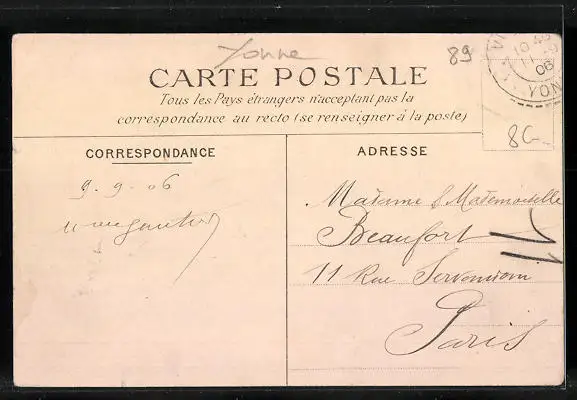 Yonne
89
10
06
YON
CARTE POSTALE
Tous les Pays étrangers n'acceptant pas la
correspondance au recto (se renseigner à la poste)
8G
CORRESPONDANCE
ADRESSE
9.9.06
Madame & Mademoiselle
Beaufort
11 Rue Servandoni
Paris